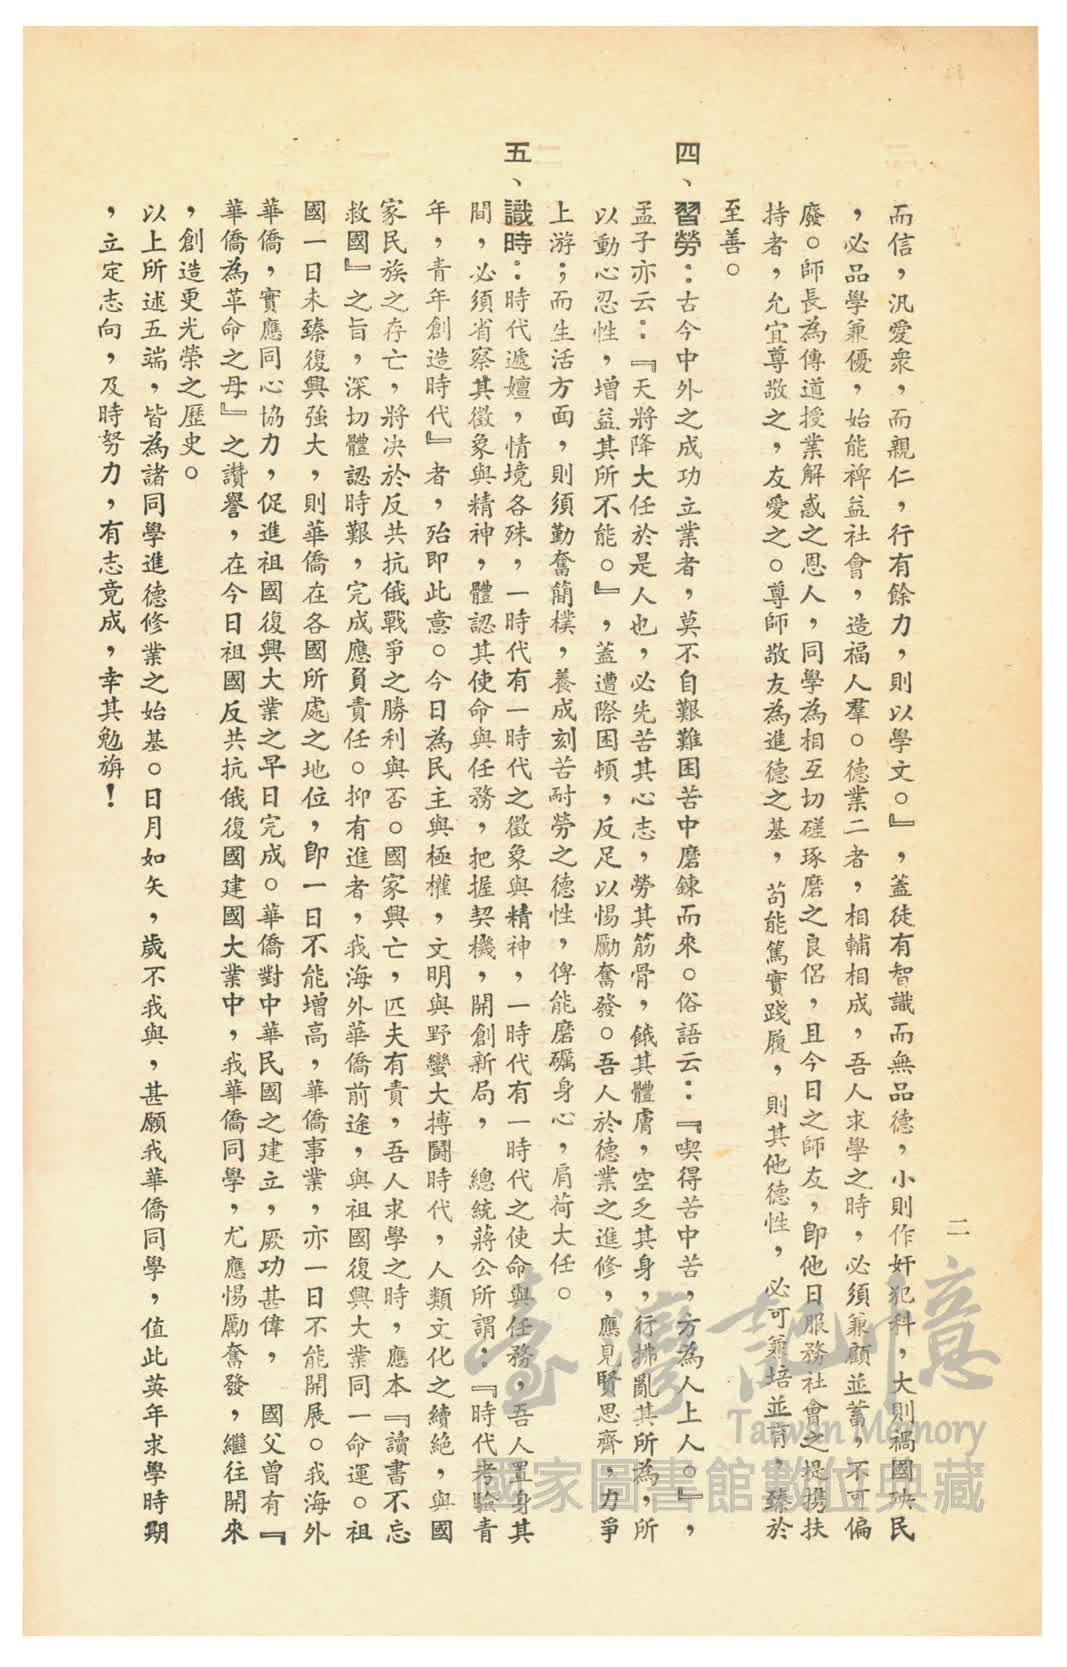 二
而信，汎愛衆，而親仁，行有餘力，則以學文。』，蓋徒有智識而無品德，小則作奸犯科，大則禍國殃民
，必品學兼優，始能裨益社會，造福人羣。德業二者，相輔相成，吾人求學之時，必須兼顧並蓄，不可偏
廢。師長為傳道授業解惑之恩人，同學為相互切磋琢磨之良侶，且今日之師友，卽他日服務社會之提携扶
持者，允宜尊敬之，友愛之。尊師敬友為進德之基，苟能篤實踐履，則其他德性，必可兼培並育，臻於
至善。
四、習勞：古今中外之成功立業者，莫不自艱難困苦中磨鍊而來。俗語云：『喫得苦中苦，方為人上人。』，
孟子亦云：『天將降大任於是人也，必先苦其心志，勞其筋骨，餓其體膚，空乏其身，行拂亂其所為，所
以動心忍性，增益其所不能。』，蓋遭際困頓，反足以惕勵奮發。吾人於德業之進修，應見賢思齊，力爭
上游；而生活方面，則須勤奮簡樸，養成刻苦耐勞之德性，俾能磨礪身心，肩荷大任。
五、識時：時代遞嬗，情境各殊，一時代有一時代之徵象與精神，一時代有一時代之使命與任務，吾人置身其
間，必須省察其徵象與精神，體認其使命與任務，把握契機，開創新局，　總統蔣公所謂：『時代考驗青
年，青年創造時代』者，殆即此意。今日為民主與極權，文明與野蠻大搏鬪時代，人類文化之續絶，與國
家民族之存亡，將决於反共抗俄戰爭之勝利與否。國家興亡，匹夫有責，吾人求學之時，應本『讀書不忘
救國』之旨，深切體認時艱，完成應負責任。抑有進者，我海外華僑前途，與祖國復興大業同一命運。祖
國一日未臻復興強大，則華僑在各國所處之地位，卽一日不能增高，華僑事業，亦一日不能開展。我海外
華僑，實應同心協力，促進祖國復興大業之早日完成。華僑對中華民國之建立，厥功甚偉，　國父曾有『
華僑為革命之母』之讚譽，在今日祖國反共抗俄復國建國大業中，我華僑同學，尤應惕勵奮發，繼往開來
，創造更光榮之歷史。
以上所述五端，皆為諸同學進德修業之始基。日月如矢，歲不我與，甚願我華僑同學，值此英年求學時期
，立定志向，及時努力，有志竟成，幸其勉旃！
臺灣記憶
Taiwan Memory
國家圖書館數位典藏